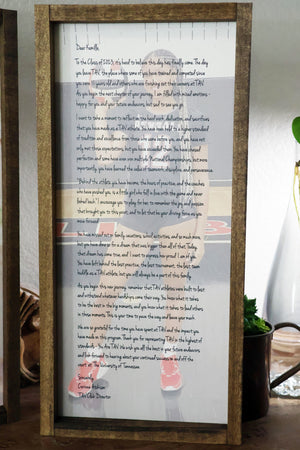 Dear Kamille,
To the Class of 2023, it's hard to believe this day has finally come. The day
you leave TAV, the place where some of you have trained and competed since
you were 10 years old and others who are finishing out their careers at TAV.
As you begin the next chapter of your journey, I am filled with mixed emotions -
happy for you and your future endeavors, but sad to see you go.
I want to take a moment to reflect on the hard work, dedication, and sacrifices
that you have made as a TAV athlete. You have been held to a higher standard
of tradition and excellence from those who were before you, and you have not
only met these expectations, but you have exceeded them. You have chased
perfection and some have even won multiple National Championships, but more
importantly, you have learned the value of teamwork, discipline, and perseverance.
"Behind the athlete you have become, the hours of practice, and the coaches
who have pushed you, is a little girl who fell in love with the game and never
looked back." I encourage you to play for her, to remember the joy and passion
that brought you to this point, and to let that be your driving force as you
move forward.
You have missed out on family vacations, school activities, and so much more,
but you have done so for a dream that was bigger than all of that. Today,
that dream has come true, and I want to express how proud I am of you.
You have left behind the best practice, the best tournament, the best team
huddle as a TAV athlete, but you will always be a part of this family.
As you begin this new journey, remember that TAV athletes were built to last
and withstand whatever hardships come their way. You know what it takes
to be the best in the big moments, and you know what it takes to lead others
in these moments. This is your time to pave the way and leave your mark.
We are so grateful for the time you have spent at TAV and the impact you
have made in this program. Thank you for representing TAV in the highest of
standards - You Are TAV. We wish you all the best in your future endeavors
and look forward to hearing about your continued success on and off the
court at The University of Tennessee.
Sincerely,
Corinne Atchison
TAV Club Director